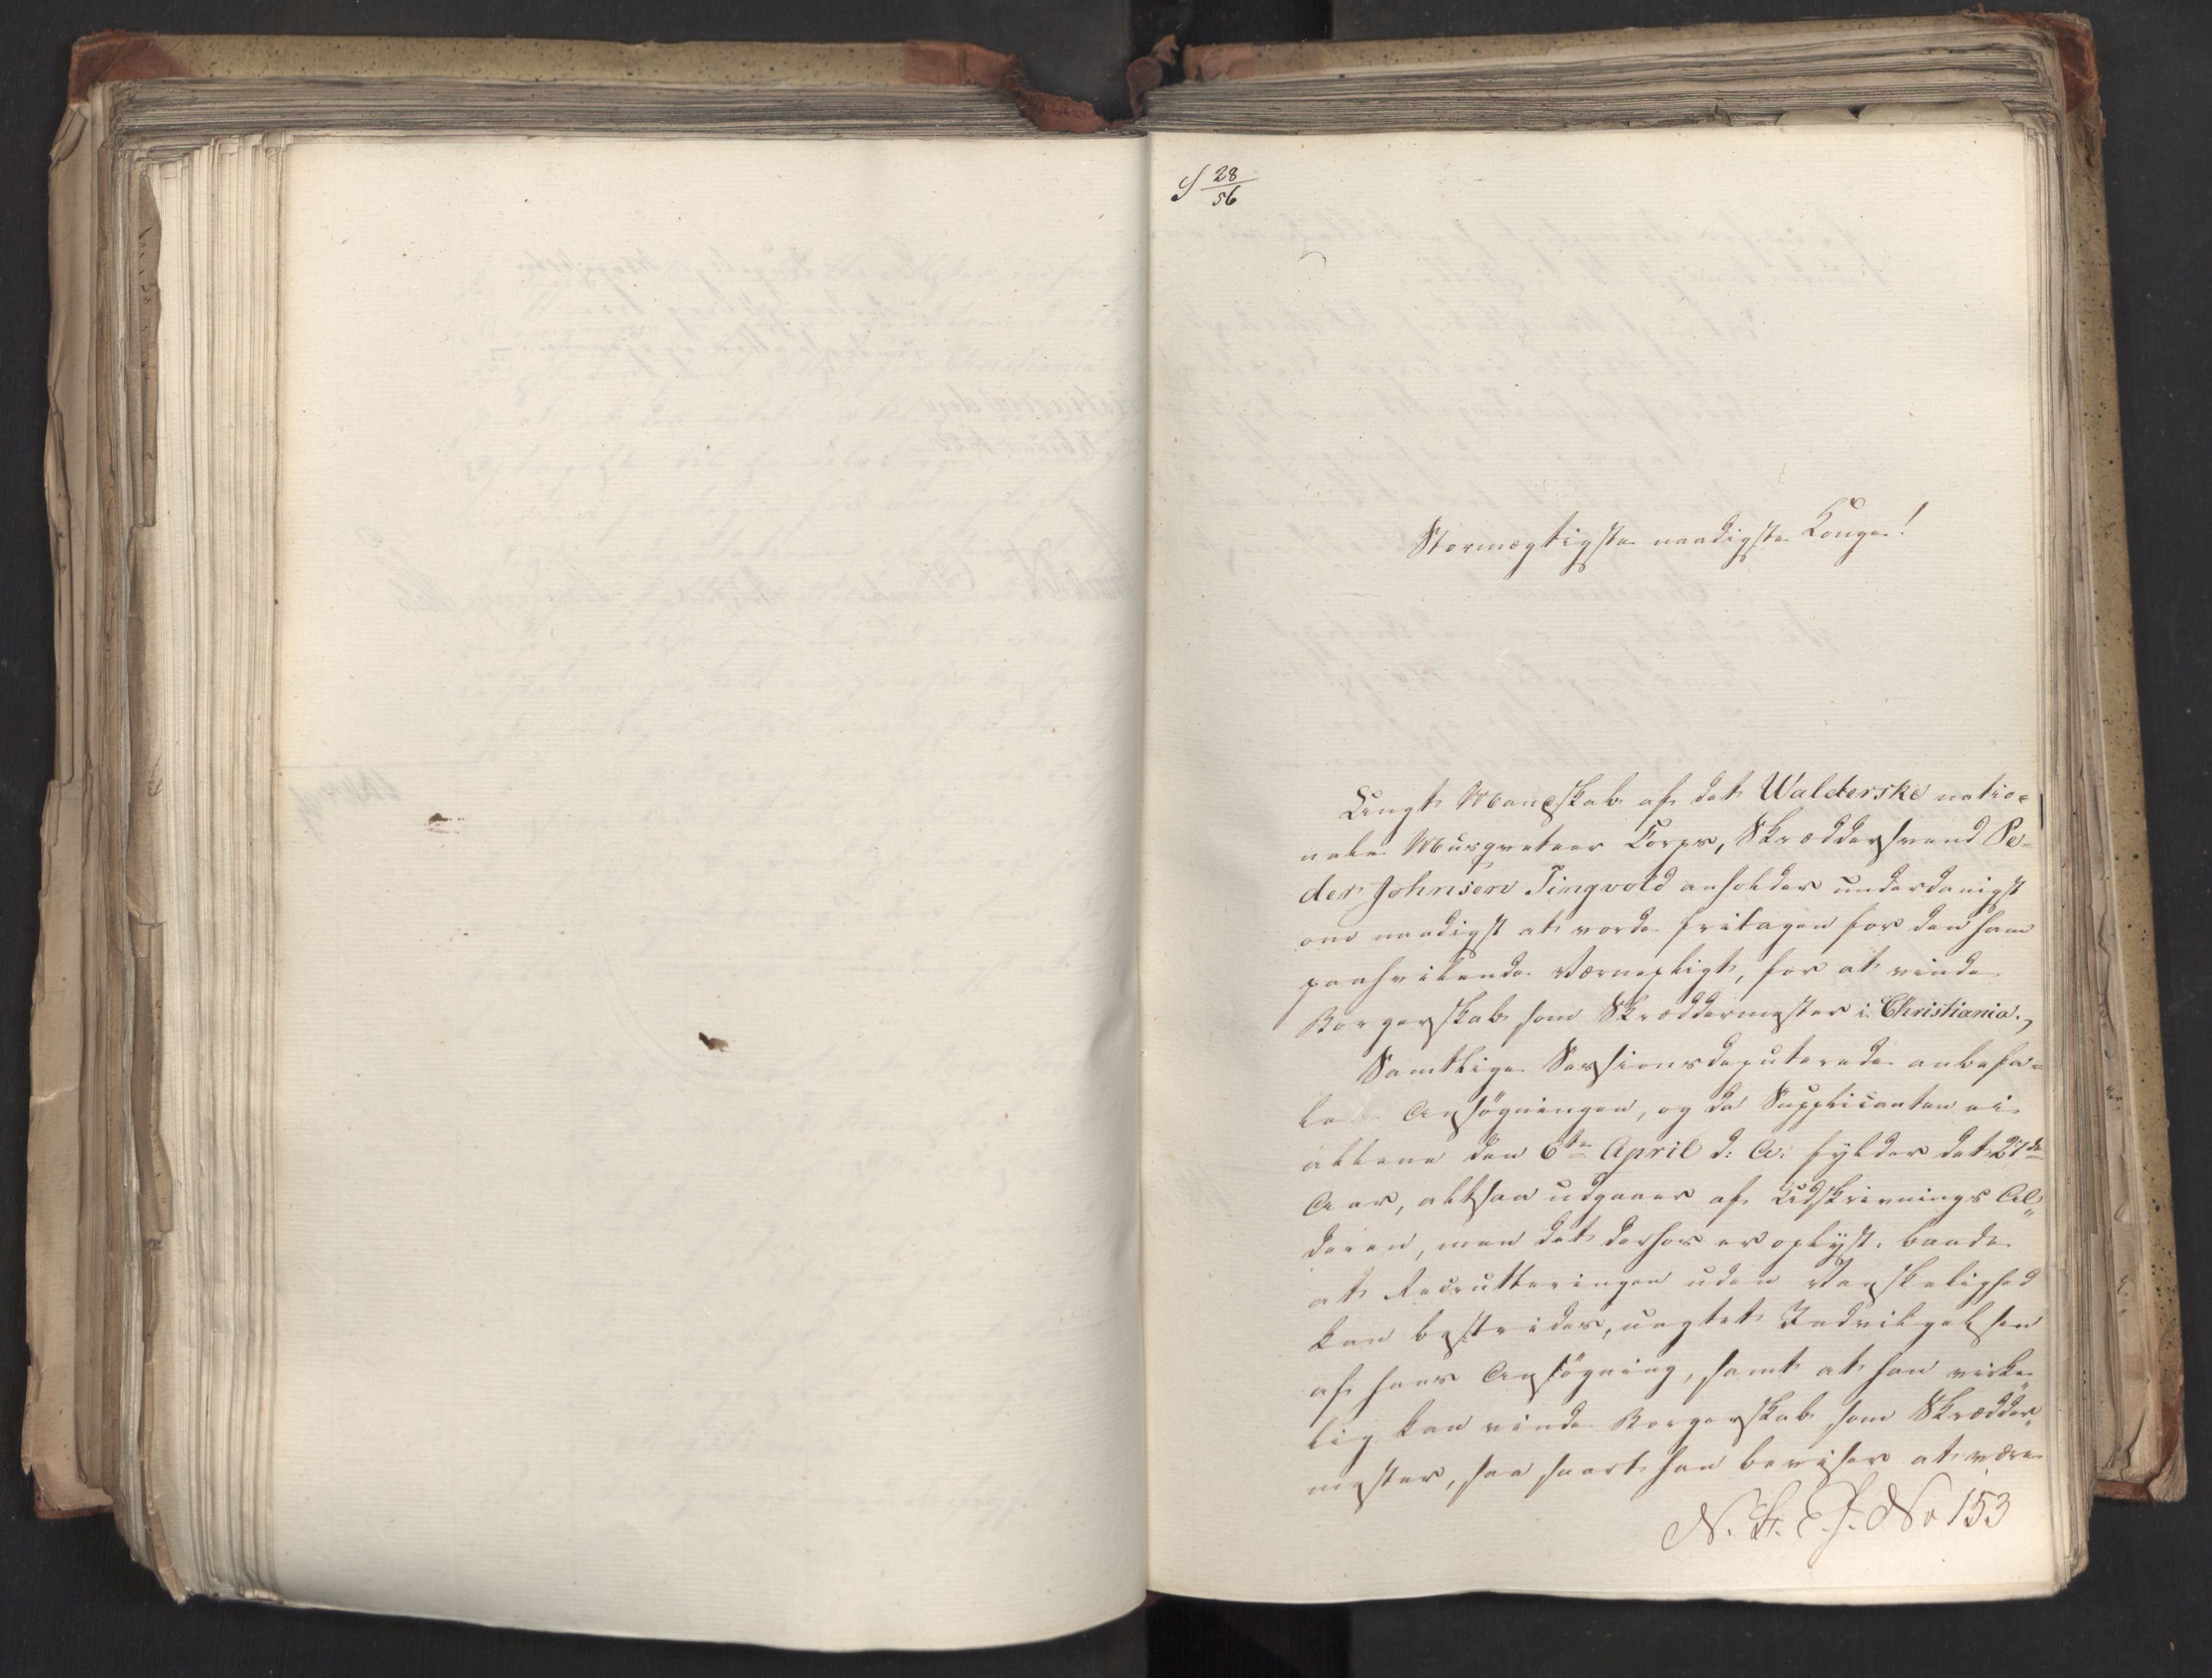 S 28/56
Stormægtigste naadigste Konge!
Ungt Mandskab af det Walderske natio=
nale Musqveteer Corps, Skræddersvend Pe-
der Johnsen Tingvold anholder underdanigst
om naadigst at vorde fritagen for den ham
paahvilende Værnepligt, for at vinde
Borgerskab som Skræddermester i Christiania.
Samtlige Sessionsdeputerede anbefa=
le Ansøgningen, og da Supplicanten ei
allene den 6te April d: A: fylder det 27de
Aar, altsaa udgaaer af Udskrivnings Al„
deren, men det derhos er oplyst baade
at Recrutteringen uden Vanskelighed
kan bestrides, uagtet Indvilgelsen
af hans Ansøgning, samt at han virke„
lig kan vinde Borgerskab som Skrædder„
mester, saa snart han beviser at være
N. 153